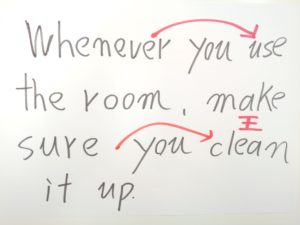 Whenever you use
the room, make
sure you clean
it up.